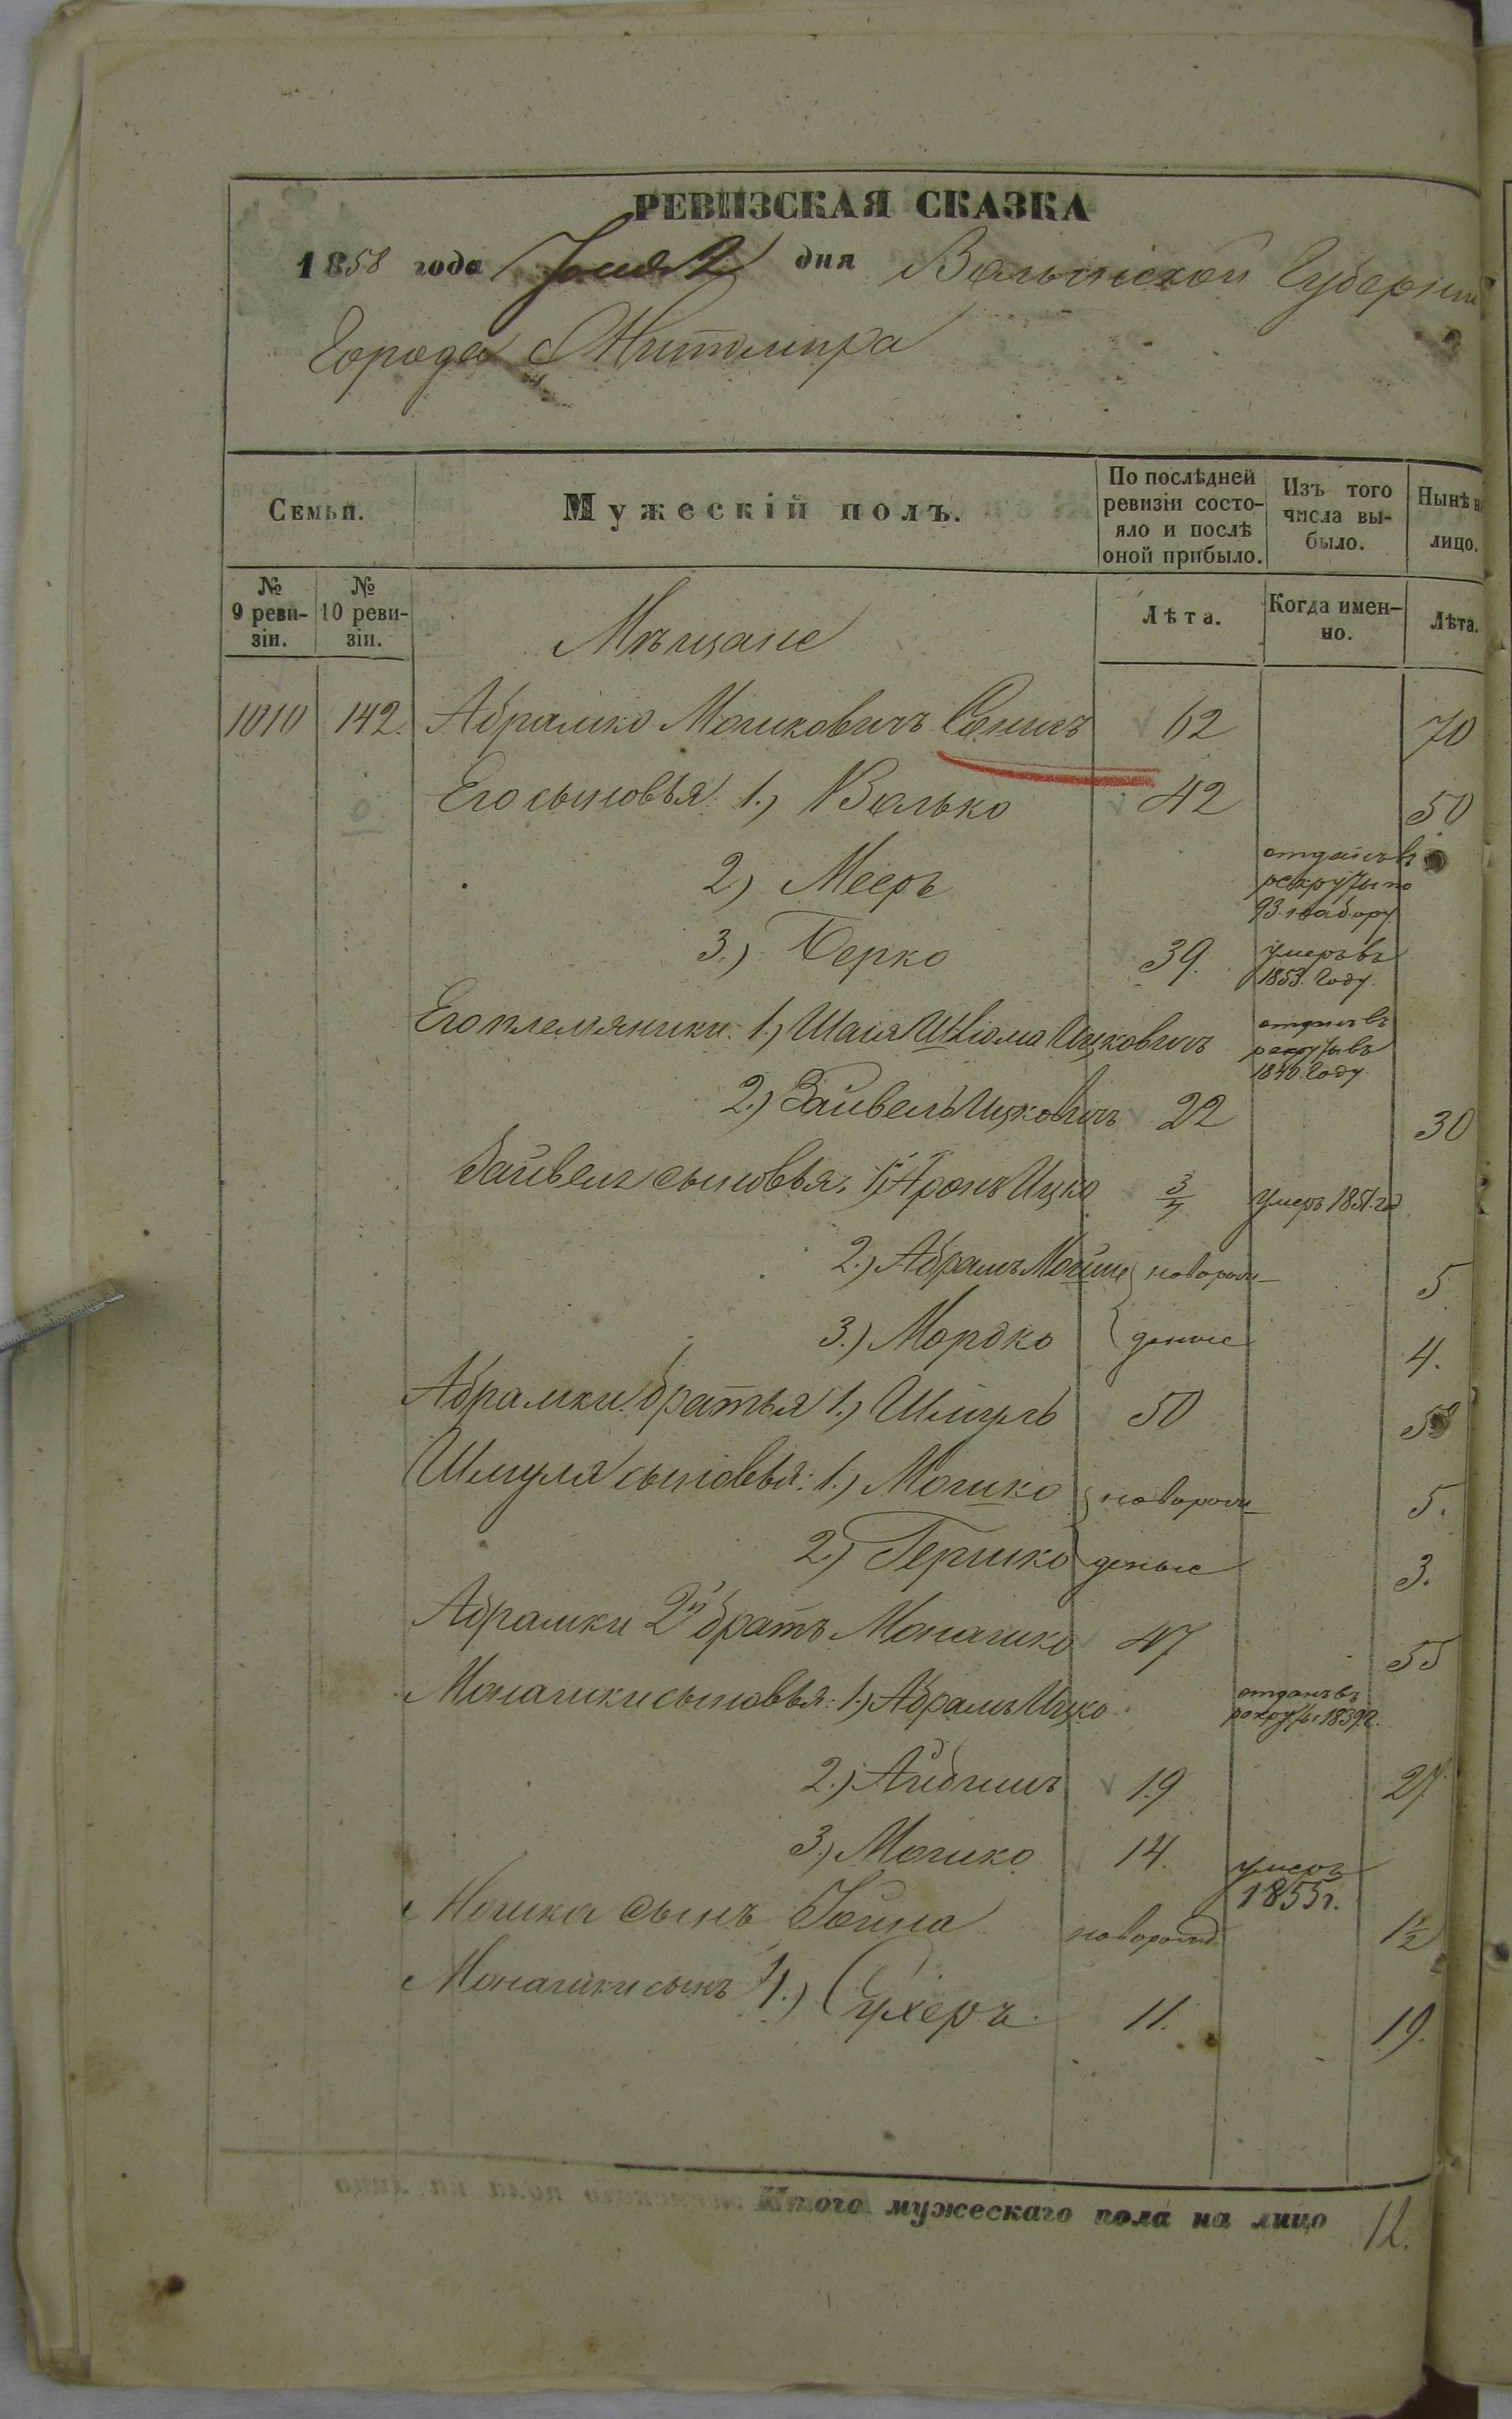 РЕВИЗСКАЯ СКАЗКА
1858 года Июня 2 дня Волынской Губерніи
Города Житомира
Семьи. Мужескій полъ. По послѣдней ревизіи состояло и послѣ оной прибыло. Изъ того числа выбыло. Нынѣ на лицо.
№ 9 ревизіи. № 10 ревизіи. Мѣщане Лѣта. Когда именно. Лѣта.
1010 142. Абрамко Мошковичъ 62 70
Его сыновья: 1.) Волько 42 50
2.) Мееръ отданъ въ рекруты по 93. набору
3.) Берко 39. умеръ въ 1853. году.
Его племяники: 1.) Шаія Шлiома Ицковичъ отданъ въ рекруты въ 1840. году.
2.) Зайвель Ицковичъ 22 30
Зайвеля сыновья: 1.) Аронъ Ицко умеръ 1851. год
2.) Абрамъ Мойше новорож- 5
3.) Мордко денные 4.
Абрамки братья 1.) Шмуль 50 58
Шмуля сыновья: 1.) Мошко новорож- 5.
2.) Гершко денные 3.
Абрамки 2й братъ Монашко 47 55
Монашки сыновья: 1.) Абрамъ Ицко отданъ въ рекруты 1839 г.
2.) 19 27
3.) Мошко 14. умеръ 1855 г.
Мошка сынъ новорожд. 1½
Монашки сынъ 4.) Сухеръ 11. 19.
Итого мужескаго пола на лицо 12.